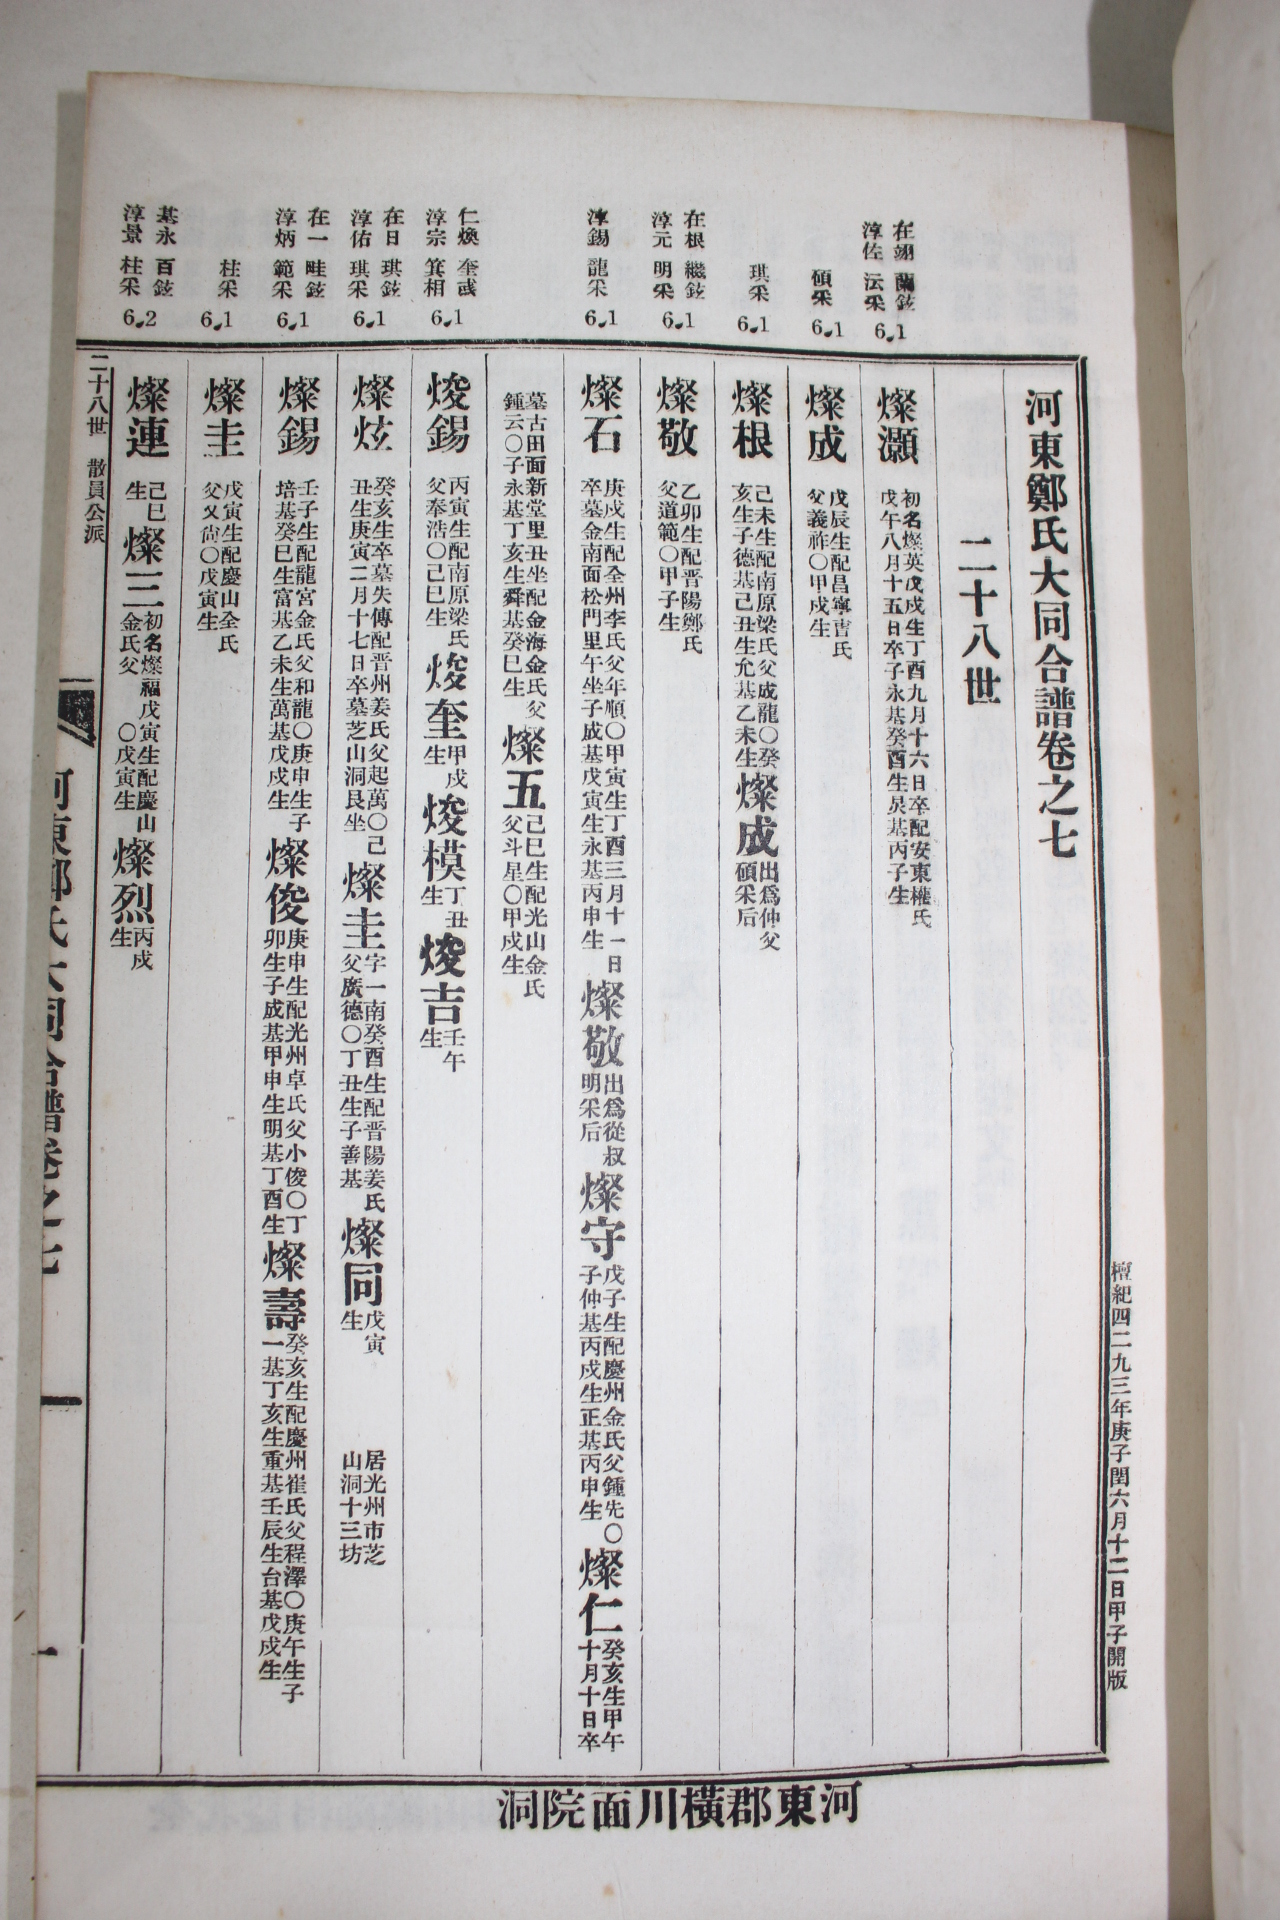 河東鄭氏大同合譜卷之七
二十八世
在翊 蘭鉉
淳佐 沄采
6.1
燦灝
初名燦英戊戌生丁酉九月十六日卒配安東權氏
戊午八月十五日卒子永基癸酉生炅基丙子生
碩采
6.1
燦成
戊辰生配昌寧曺氏
父義祚〇甲戌生
琪采
6.1
燦根
己未生配南原梁氏父成龍〇癸
亥生子德基己丑生允基乙未生
燦成
出爲仲父
碩采后
在根 繼鉉
淳元 明采
6.1
燦敬
乙卯生配晋陽鄭氏
父道範〇甲子生
淳錫 龍采
6.1
燦石
庚戌生配全州李氏父年順〇甲寅生丁酉三月十一日
卒墓金南面松門里午坐子成基戊寅生永基丙申生
燦敬
出爲從叔
明采后
燦守
戊子生配慶州金氏父鍾先〇
子仲基丙戌生正基丙申生
燦仁
癸亥生甲午
十月十日卒
墓古田面新堂里丑坐配金海金氏父
鍾云〇子永基丁亥生舜基癸巳生
燦五
己巳生配光山金氏
父斗星〇甲戌生
仁煥 奎彧
淳宗 箕相
6.1
焌錫
丙寅生配南原梁氏
父奉浩〇己巳生
焌奎
甲戌
生
焌模
丁丑
生
焌吉
壬午
生
在日 琪鉉
淳佑 琪采
6.1
燦炫
癸亥生卒墓失傳配晋州姜氏父起萬〇己
丑生庚寅二月十七日卒墓芝山洞艮坐
燦圭
字一南癸酉生配晋陽姜氏
父廣德〇丁丑生子善基
燦同
戊寅
生
居光州市芝
山洞十三坊
在一 畦鉉
淳炳 範采
6.1
燦錫
壬子生配龍宮金氏父和龍〇庚申生子
培基癸巳生富基乙未生萬基戊戌生
燦俊
庚申生配光州卓氏父小俊〇丁
卯生子成基甲申生明基丁酉生
燦壽
癸亥生配慶州崔氏父程澤〇庚午生子
一基丁亥生重基壬辰生台基戊戌生
柱采
6.1
燦圭
戊寅生配慶山全氏
父又尙〇戊寅生
基永 百鉉
淳景 柱采
6.2
燦連
己巳
生
燦三
初名燦福戊寅生配慶山
金氏父 〇戊寅生
燦烈
丙戌
生
二十八世 散員公派
河東鄭氏大同合譜卷之七
一
檀紀四二九三年庚子閏六月十二日甲子開版
河東郡橫川面院洞